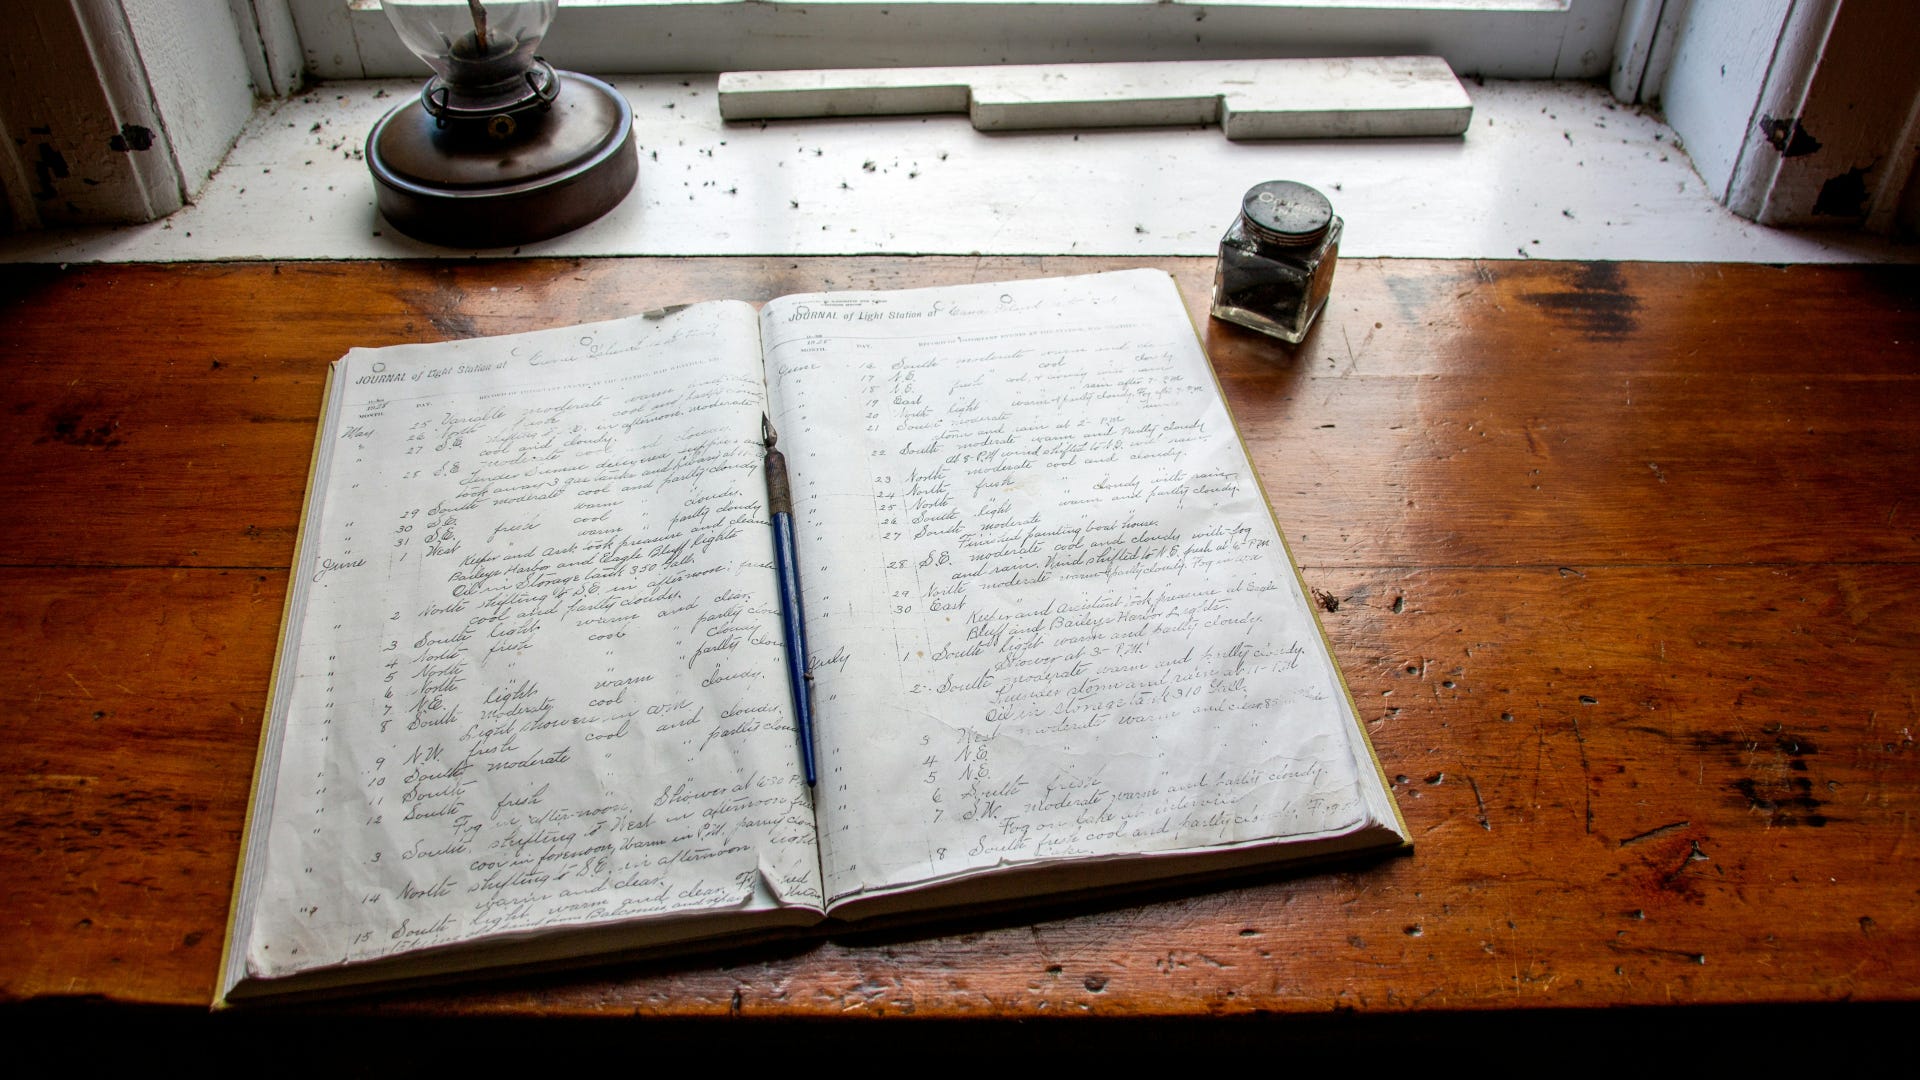 JOURNAL of Light Station at Cana Island
RECORD OF IMPORTANT EVENTS AT THE STATION, BAD WEATHER, ETC.
MONTH. DAY.
May 25 Variable moderate warm and clear
" 26 North fresh cool and partly cloudy
" 27 S.E. shifting to S.E. in afternoon, moderate
cool and cloudy.
" 28 S.E. moderate cool and cloudy.
Tender Sumac delivered supplies and
took away 3 gas tanks and
29 South moderate cool and partly cloudy
" 30 S.E. " warm " cloudy.
" 31 S.E. fresh cool " partly cloudy
June 1 West " warm " and clear
Keeper and Asst. took pressure
Baileys Harbor and Eagle Bluff lights
Oil in Storage tank 350 Gall.
" 2 North shifting to S.E. in afternoon;
cool and partly cloudy.
" 3 South light warm and clear.
" 4 North fresh cool " partly
" 5 North " " " cloudy
" 6 North " " " partly
" 7 N.E. light warm
" 8 South Moderate cool " cloudy.
Light showers in
" 9 N.W. fresh cool and cloudy.
" 10 South moderate " " partly
" 11 South
" 12 South fresh Shower at 6-30 P.
Fog in after-noon.
3 South, shifting to West in afternoon
cool in forenoon, warm in P.M.
" 14 North shifting to S.E. in afternoon. light
warm and clear.
" 15 South light warm and clear.
JOURNAL of Light Station at Cana Island
RECORD OF IMPORTANT EVENTS AT THE STATION, BAD WEATHER, ETC.
MONTH. DAY.
June 16 South moderate warm and
" 17 N.E. " cool cloudy
" 18 N.E. fresh " cool, & cloudy with rain
" 19 East " " " rain after 7 P.M
" 20 North light warm & partly cloudy. Fog after
" 21 South moderate
storm and rain at 2- P.M
" 22 South moderate warm and Partly cloudy
At 8-P.M wind shifted to N.E. with rain
" 23 North moderate cool and cloudy.
" 24 North fresh " "
" 25 North " " cloudy with rain,
" 26 South light warm and partly cloudy.
" 27 South moderate " " "
Finished painting boat house.
" 28 S.E. moderate cool and cloudy with fog
and rain. Wind shifted to N.E. fresh at 6- P.M
" 29 North moderate warm & partly cloudy. Fog in
" 30 East
Keeper and Assistant took pressure at Eagle
Bluff and Baileys Harbor Lights.
July 1 South light warm and partly cloudy.
Shower at 3- P.M.
" 2 South moderate warm and partly cloudy.
storm and rain at 11- P.M
Oil in storage tank 310 Gall.
3 West moderate warm and clear
4 N.E. " " "
5 N.E. " " "
6 South fresh " "
" 7 S.W. moderate warm and partly cloudy.
Fog on Lake in
" 8 South fresh cool and partly cloudy. Fog on
Lake.